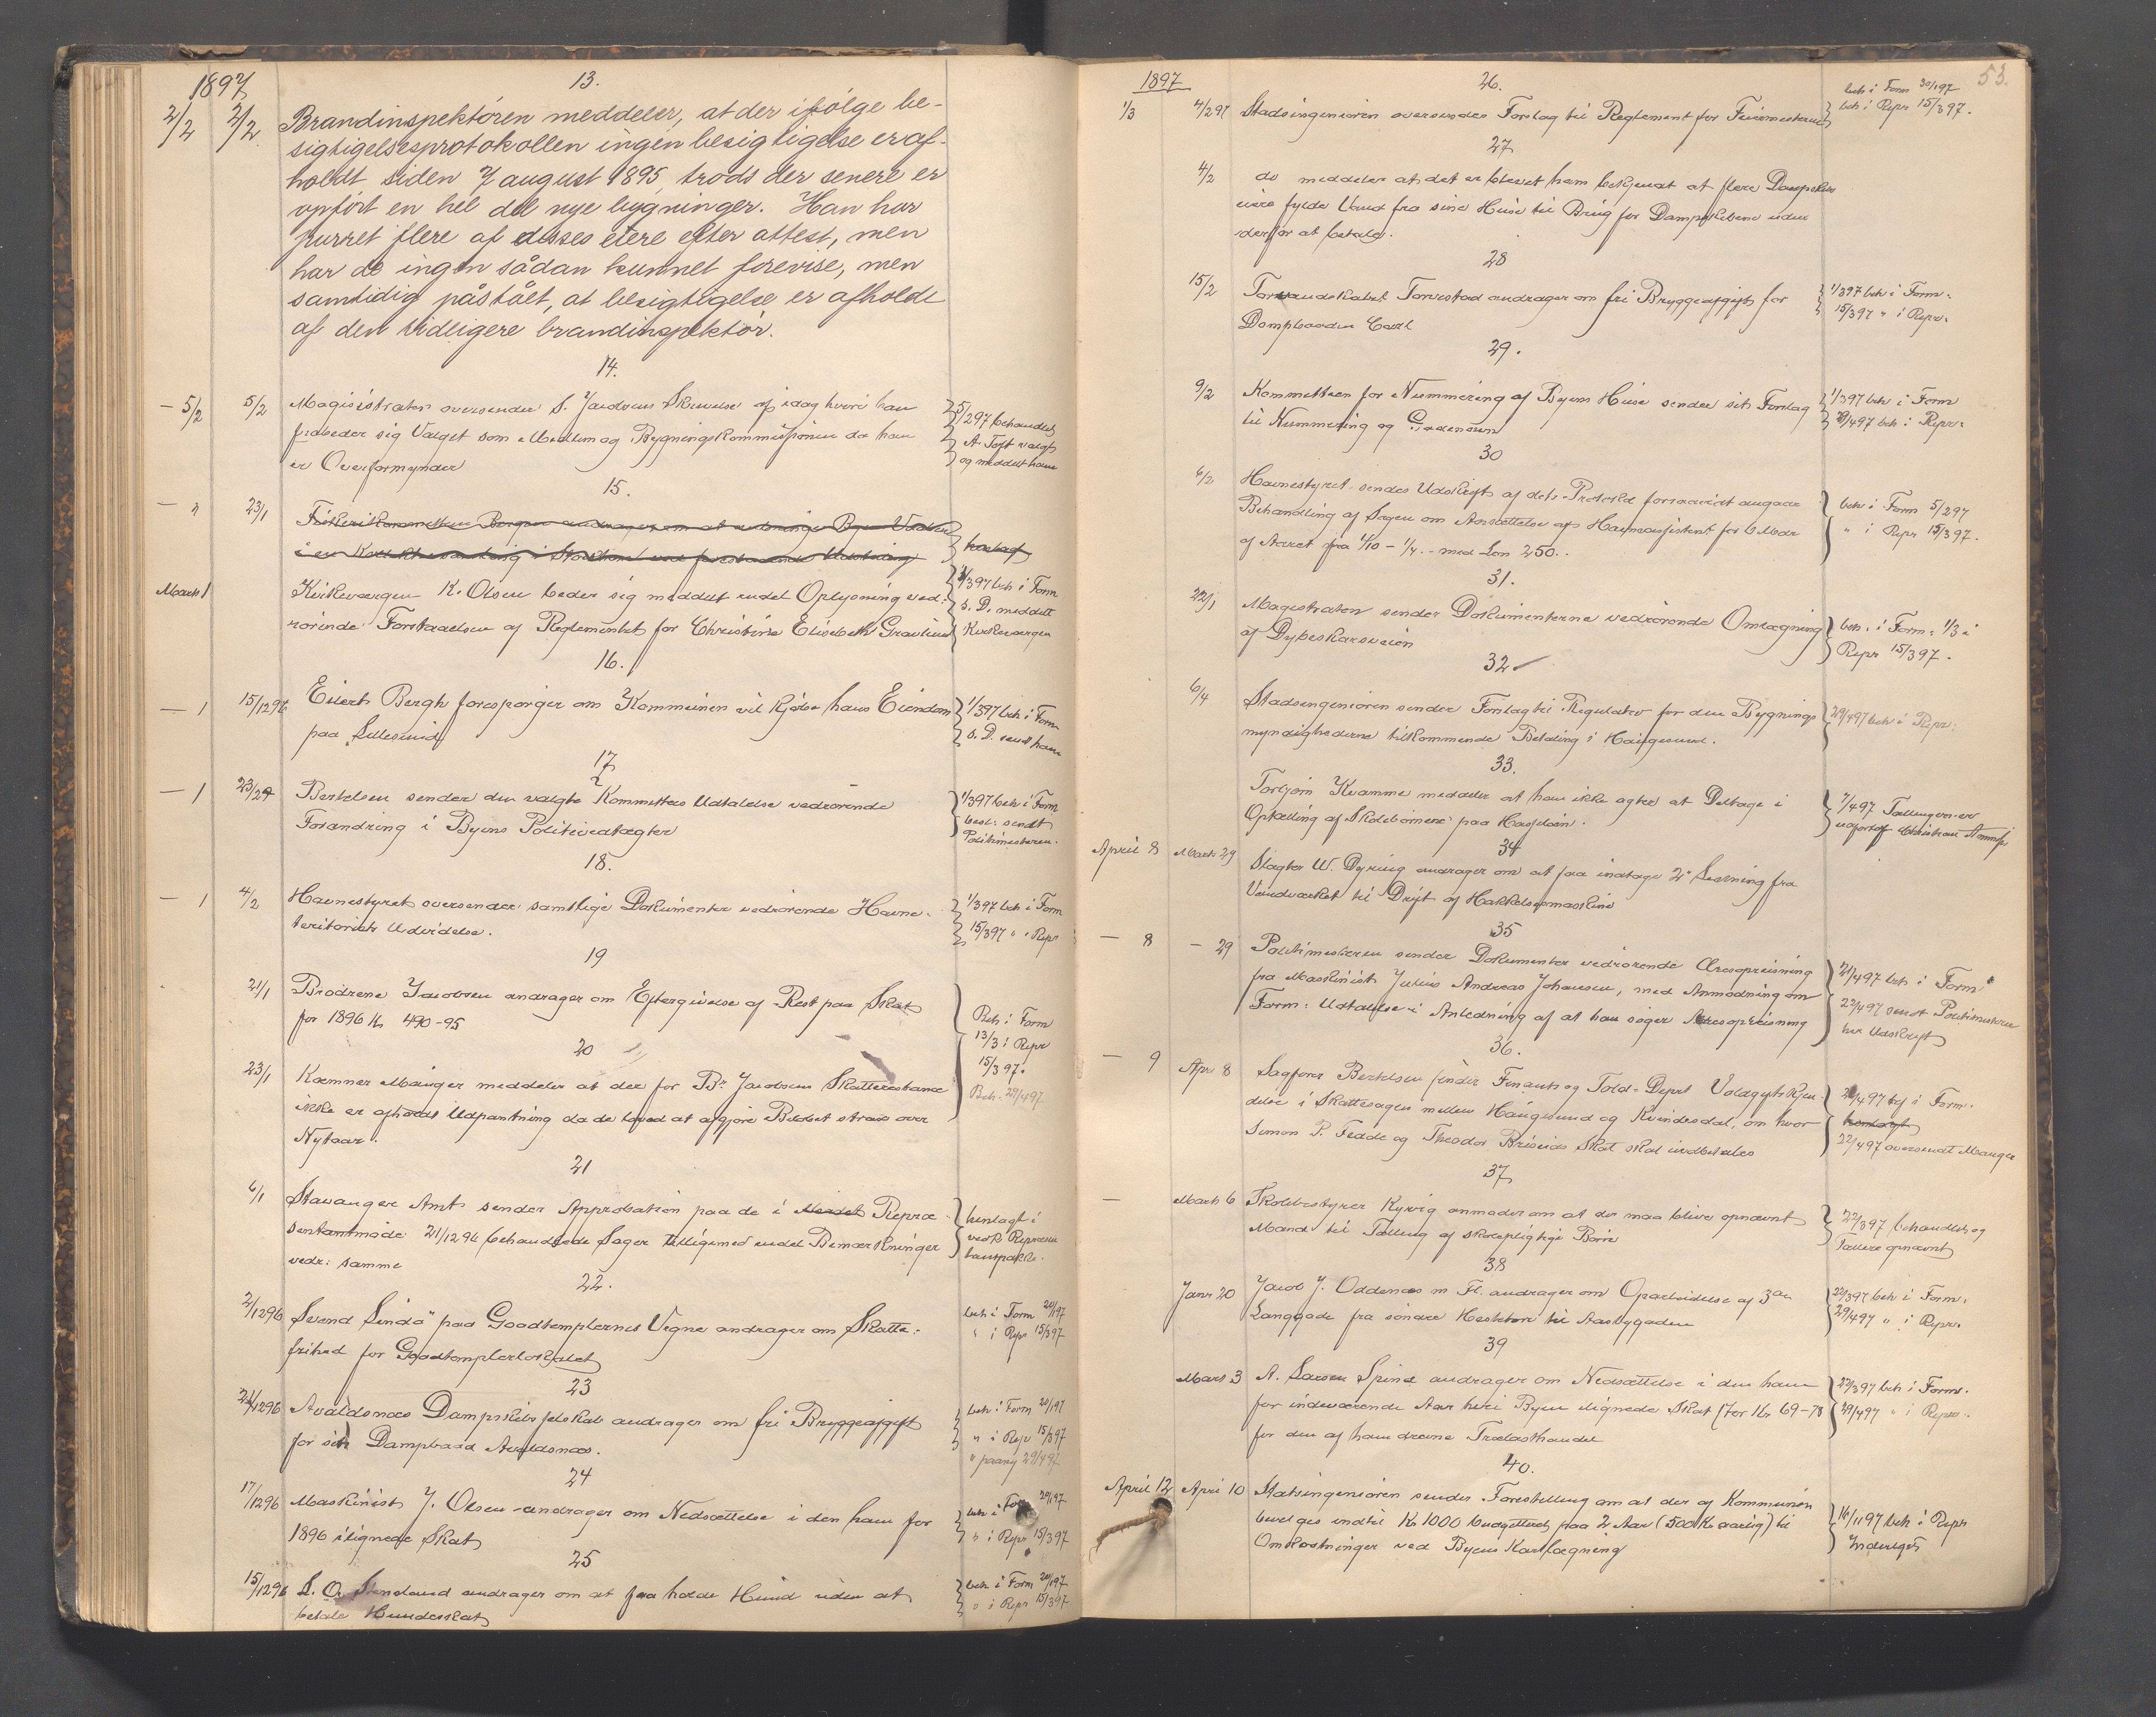 1897
13.
2/2 2/2 Brandinspektören meddeler, at der ifölge be-
sigtigelsesprotokollen ingen besigtigelse er af-
holdt siden 7 august 1895, trods der senere er
opfört en hel del nye bygninger. Han har
purret flere af disses eiere efter attest, men
har de ingen sådan kunnet forevise, men
samtidig påstået, at besigtigelse er afholdt
af den tidligere brandinspektör.
14.
— 5/2 5/2 Magisistraten oversender S. Jacobsens Skrivelse af idag hvori han
frabeder sig Valget som Medlem og Bygningskommissionen da han
er Overformynder
5/297 behandlet
A. Toft valgt
og meddelt ham
15.
23/1
henlagt
Marts 1 Kirkevergen K. Olsen beder sig meddelt endel Oplysning ved-
rörende Forstaaelsen af Reglementet for Christine Elisabeth
1/397 beh i Form
s. D. meddelt
Kirkevergen
16.
— 1 15/1296 Eilert Bergh forespørger om Kommunen vil kjöbe hans Eiendom
paa Lillesund
1/397 beh i Form
s. D. sendt ham
17
— 1 23/2 Bertelsen sender den valgte Kommittees Udtalelse vedrörende
Forandring i Byens Politivedtægter
1/397 beh i Form
besl: sendt
Politimesteren.
18.
— 1 4/2 Havnestyret oversender samtlige Dokumenter vedrörende Havne-
teritoriets Udvidelse.
1/397 beh i Form
15/397 " " Repr
19
21/1 Brödrene Jacobsen andrager om Eftergivelse af Rest paa Skat
for 1896 Kr 490-95
Beh i Form
13/3 i Repr
15/397.
Beh. 29/497
20
23/1 Kæmner Mauger meddeler at der for Br. Jacobsens Skatterestance
ikke er afholdt Udpantning da de loved at afgjöre Belöbet straks over
Nytaar.
21
6/1 Stavanger Amt sender Approbation paa de i Mödet Repræ-
sentantmöde 21/1296 behandlede Sager tilligemed endel Bemærkninger
vedr: samme
henlagt i
vedk Repræsen
tantpakke.
22.
2/1296 Svend Lindö paa Goodtemplernes Vegne andrager om Skatte-
frihed for Goodtemplerlokalet
beh i Form 20/197
" i Repr 15/397
23
21/1296 Avaldsnæs Dampskibsselskab andrager om fri Bryggeafgift
for sin Dampbaad Avaldsnæs.
beh i Form 20/197
" i Repr 15/397
" paany 29/497
24
17/1296 Maskinist J. Olsen andrager om Nedsættelse i den ham for
1896 ilignede Skat
beh i Form 20/197
" i Repr 15/397
25
15/1296 S. O. Stensland andrager om at faa holde Hund uden at
betale Hundeskat
beh i Form 20/197
" i Repr 15/397
53.
1897
26.
1/3 4/297 Stadsingeniören oversender Forslag til Reglement for Feiermesteren
beh i Form 30/197
beh i Repr 15/397.
27
4/2 do meddeler at det er blevet ham bekjendt at flere Dampskibs
eiere fylde Vand fra sine Huse til Brug for Dampskibene uden
derfor at betale.
28
15/2 Torvestad andrager om fri Bryggeafgift for
Dampbaaden Carl
1/397 beh i Form.
15/397 " i Repr.
29.
9/2 Kommitteen for Nummering af Byens Huse sender sit Forslag
til Nummering og Gadenavn
1/397 beh i Form
29/497 beh i Repr.
30
6/2 Havnestyret sender Udskrift af dets Protokol forsaavidt angaar
Behandling af Sagen om Ansættelse af Havneassistent for 6 Mdr
af Aaret fra 1/10 - 1/4. - med Lön 250..
beh i Form 5/297
" i Repr 15/397.
31.
22/1 Magistraten sender Dokumenterne vedrörende Omlægning
af Dypeskarsveien
beh. i Form. 1/3 i
Repr 15/397.
32
6/4 Stadsengeniören sender Forslag til Regulativ for den Bygnings
myndighederne tilkommende Betaling i Haugesund.
29/497 beh i Repr:
33.
Torbjörn Kvamme meddeler at han ikke agter at Deltage i
Optælling af Skolebörnene paa Hasselöen.
7/497 Tællingen er
34
April 8 Marts 29 Slagter W. Dyring andrager om at faa indtage 2" Ledning fra
Vandværket til Drift af Hakkelsesmaskine
35
— 8 — 29 Politimesteren sender Dokumenter vedrörende Æresopreisning
fra Maskinist Julius Andreas Johansen, med Anmodning om
Form: Udtalelse i Anledning af at han söger Æresopreisning
21/497 beh i Form
22/497 sendt Politimesteren
her Udskrift
36.
— 9 Apr 8 Sagförer Bertelsen sender Finants og Told-Depts Voldgiftskjen-
delse i Skattesagen mellem Haugesund og Kvindesdal, om hvor
Simon P. Fedde og Theodor Skat skal indbetales
21/497 i Form.
henlagt
22/497 oversendt Mauger
37
— Marts 6 Skolebestyrer Kyvig anmoder om at der maa blive opnævnt
Mænd til Tælling af skolepligtige Börn
22/397 behandlet og
Tællere opnævnt
38
Janr 20 Jacob J. Oddenæs m Fl. andrager om Oparbeidelse af 3die
Langgade fra söndre til Aasbyggaden
22/397 beh i Form.
29/497 " i Repr.
39
Marts 3 A. Larsen Spinde andrager om Nedsættelse i den ham
for indeværende Aar heri Byen ilignede Skat stor Kr 69-78
for den af ham drevne Trælasthandel
22/397 beh i Form.
29/497 " i Repr.
40.
April 12 April 10 Statsingeniören sender Forestilling om at der af Kommunen
bevilges indtil Kr 1000 budgetteret paa 2 Aar (500 Kr aarlig) til
Omkostninger ved Byens Kartlægning
16/1197 beh i Repr